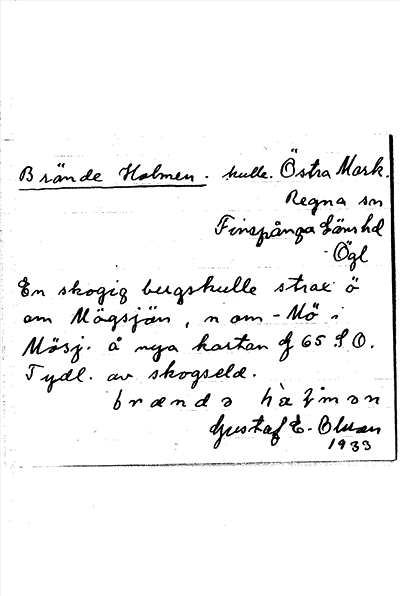 Brände Holmen. kulle. Östra Mark.
Regna sn
Finspånga Länshd
Ögl
En skogig bergskulle strax ö
om Mögsjön, n om - Mö i
Mösj. å nya kartan f 65 S.O.
Tydl. av skogseld.
Gustaf E.
1933